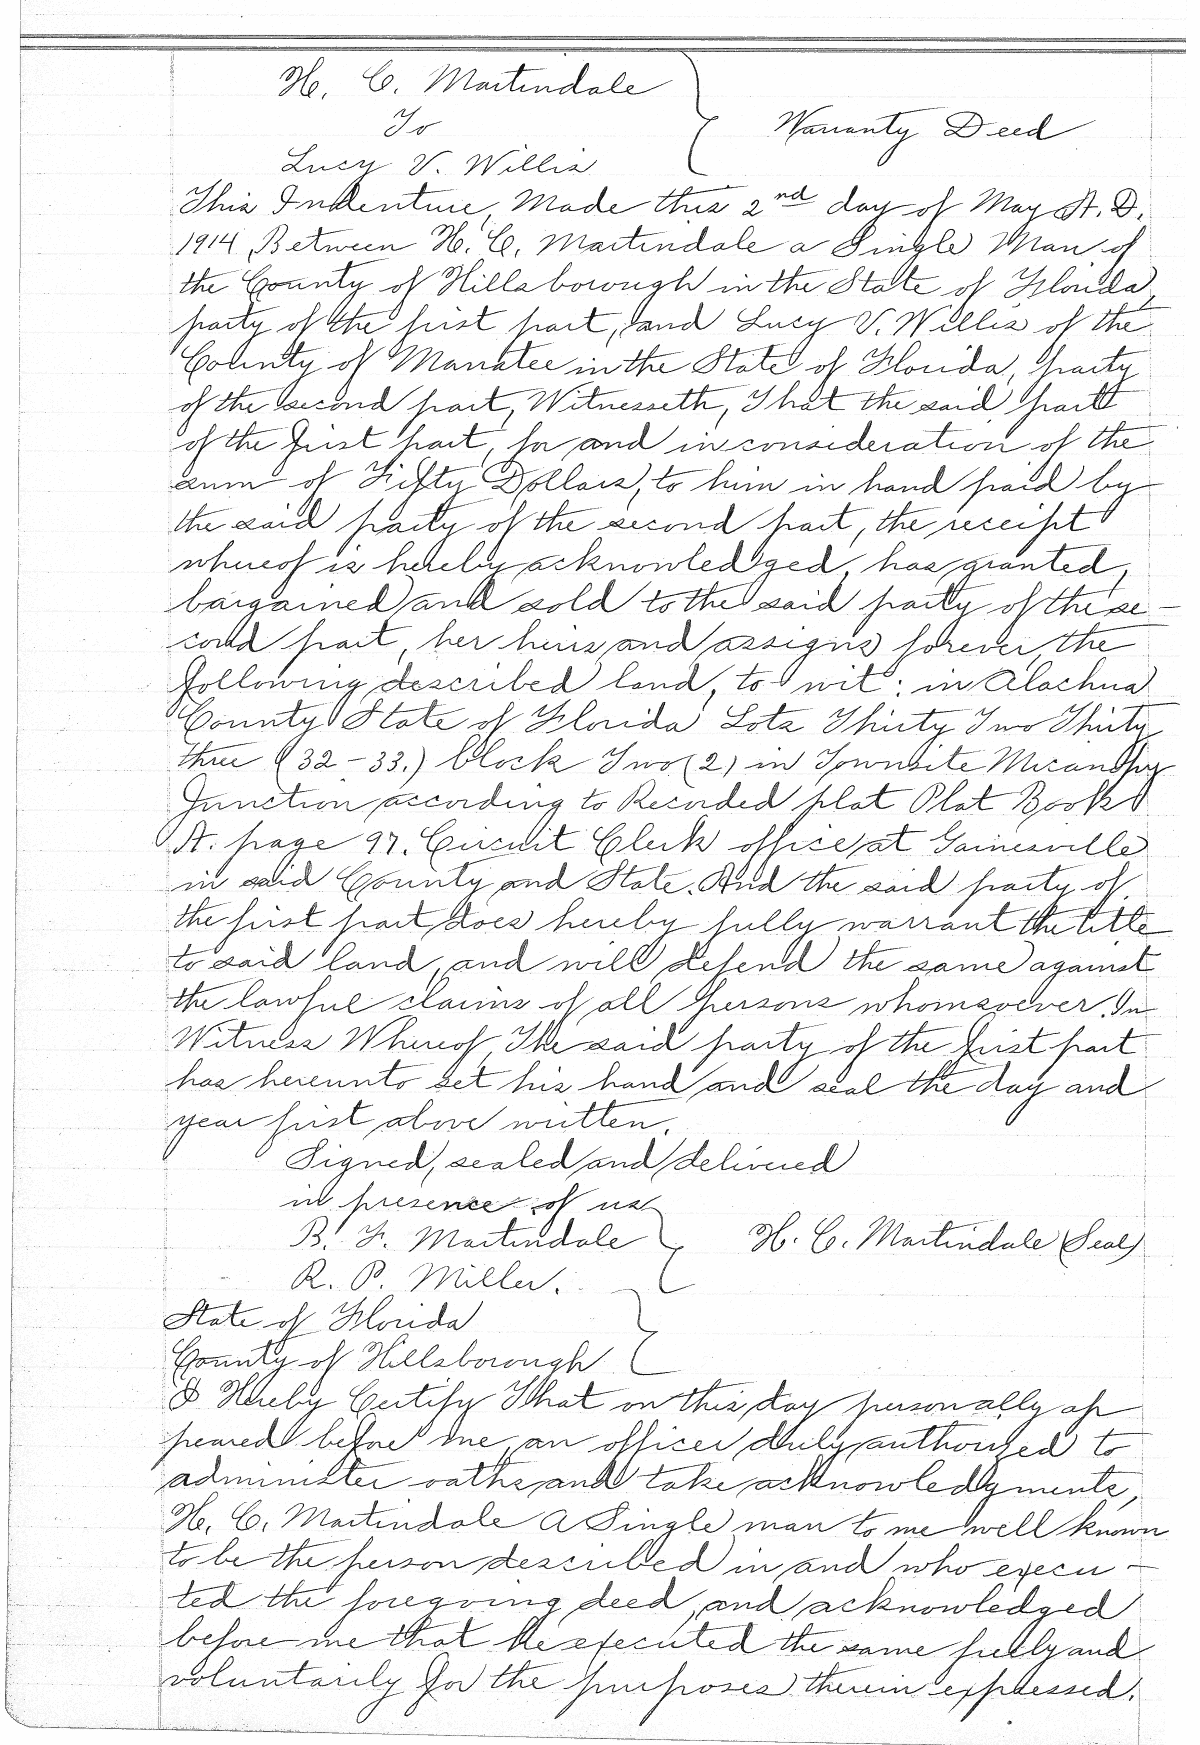 H. C. Martindale
To
Warranty Deed
Lucy V. Willis
This Indenture, Made this 2nd day of May A. D.
1914, Between H. C. Martindale a Single Man of
the County of Hillsborough in the State of Florida,
party of the first part, and Lucy V. Willis of the
County of Manatee in the State of Florida, party
of the second part, Witnesseth, That the said part
of the first part, for and in consideration of the
sum of Fifty Dollars, to him in hand paid by
the said party of the second part, the receipt
whereof is hereby acknowledged, has granted,
bargained and sold to the said party of the se-
cond part, her heirs and assigns forever, the
following described land, to wit: in Alachua
County State of Florida Lots Thirty Two Thirty
three (32-33.) block Two (2) in Townsite Micanopy
Junction according to Recorded plat Plat Book
A. page 97. Circuit Clerk office at Gainesville
in said County and State. And the said party of
the first part does hereby fully warrant the title
to said land, and will defend the same against
the lawful claims of all persons whomsoever. In
Witness Whereof, The said party of the first part
has hereunto set his hand and seal the day and
year first above written.
Signed, sealed and delivered
in presence of us
B. F. Martindale
H. C. Martindale (Seal)
R. P. Miller.
State of Florida
County of Hillsborough
I Hereby Certify That on this day personally ap
peared before me, an officer duly authorized to
administer oaths and take acknowledgments,
H. C. Martindale A Single man to me well known
to be the person described in and who execu-
ted the foregoing deed, and acknowledged
before me that he executed the same freely and
voluntarily for the purposes therein expressed.